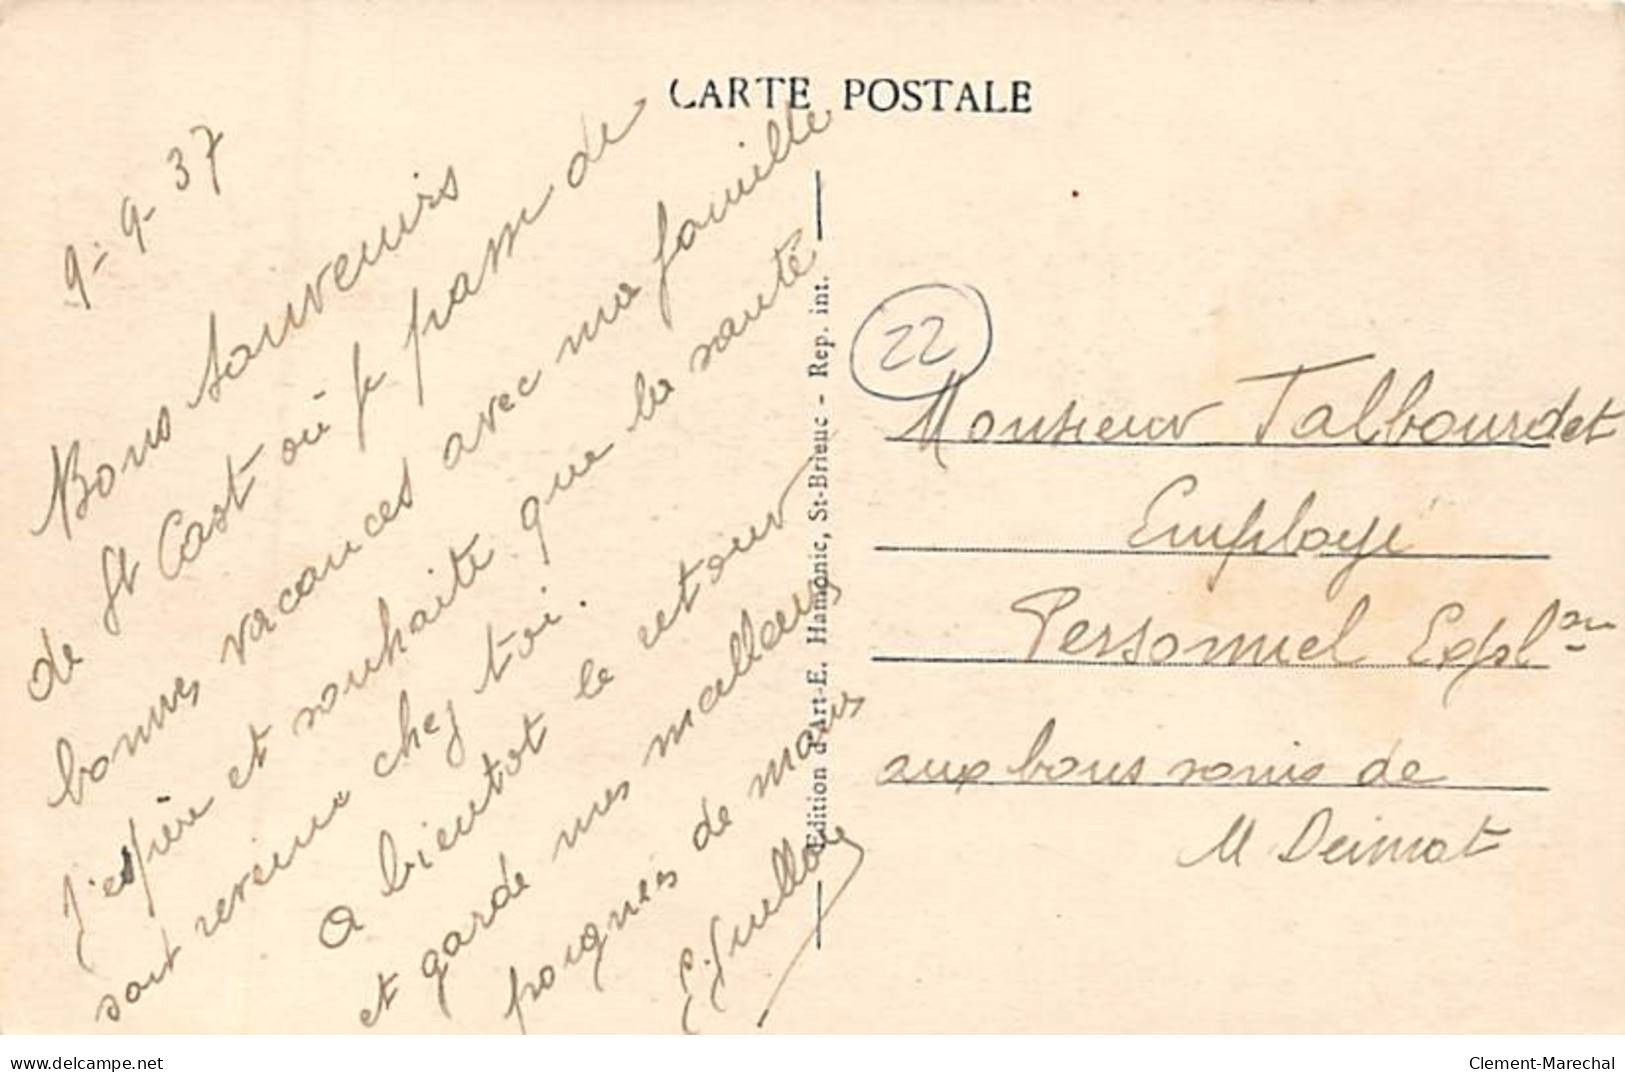 CARTE POSTALE
9-9-37
Bons souvenirs
de St Cast où je passe de
bonnes vacances avec ma famille
J'espère et souhaite que la santé
soit revenue chez toi.
A bientôt le retour
et garde mes meilleurs
poignés de mains
E. Guillou
Edition d'Art-E. Hamonic, St-Brieuc - Rep. int.
22
Monsieur Talbourdet
Employé
Personnel Expl on
aux bons soins de
M
delcampe.net
Clement-Marechal